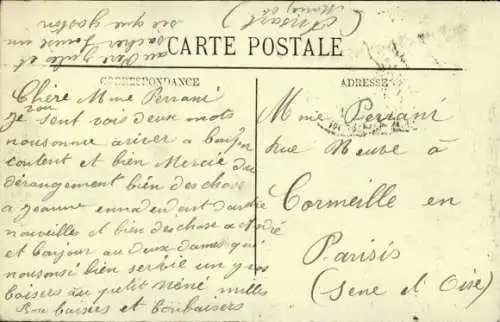 CARTE POSTALE
CORRESPONDANCE
ADRESSE
Chère Mme Perrani
je vous sent vois deux mots
nousomme ariver a bonjor
content et bien Mercie du
dérangement bien des chose
a Jeanne ennadendent dautre
nouvelle et bien des chose a André
et bonjour au deux dames qui
nousonsi bien servie un gros
baisers au petit néné milles
bon baisers et bonbaisers
Mme Perrani
Rue Neuve à
Cormeille en
Parisis
(Sene et Oise)
au Pere Jules et